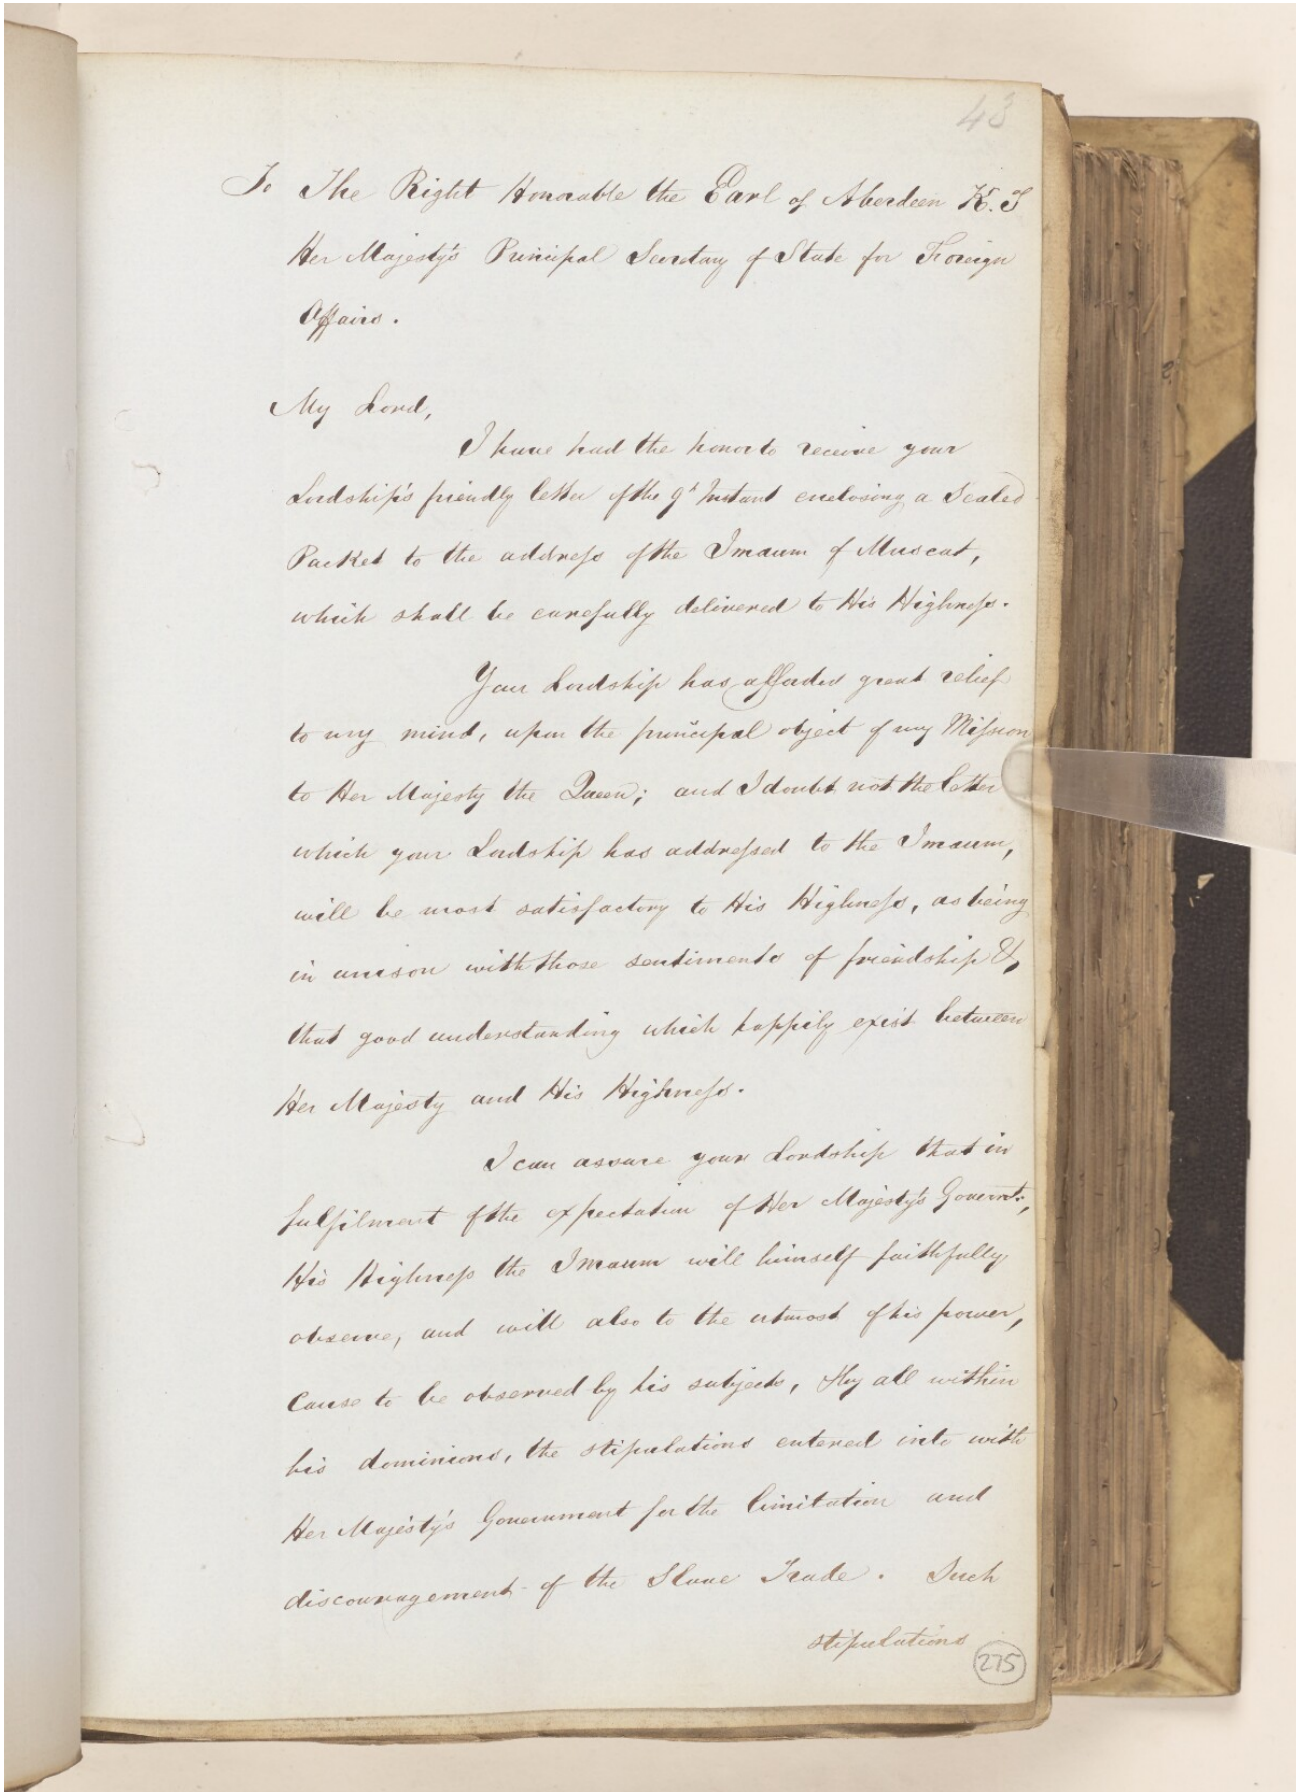 43
To The Right Honorable the Earl of Aberdeen K.T
Her Majesty's Principal Secretary of State for Foreign
Affairs.
My Lord,
I have had the honor to receive your
Lordship's friendly letter of the 9th Instant enclosing a Sealed
Packet to the address of the Imaum of Muscat,
which shall be carefully delivered to His Highness.
Your Lordship has afforded great relief
to my mind, upon the principal object of my Mission
to Her Majesty the Queen; and I doubt not the letter
which your Lordship has addressed to the Imaum,
will be most satisfactory to His Highness, as being
in unison with those sentiments of friendship &,
that good understanding which happily exist between
Her Majesty and His Highness.
I can assure your Lordship that in
fulfilment of the expectation of Her Majesty's Governt.,
His Highness the Imaum will himself faithfully
observe, and will also to the utmost of his power,
Cause to be observed by his subjects, & by all within
his dominions, the stipulations entered into with
Her Majesty's Government for the limitation and
discouragement of the Slave Trade. Such
stipulations
275